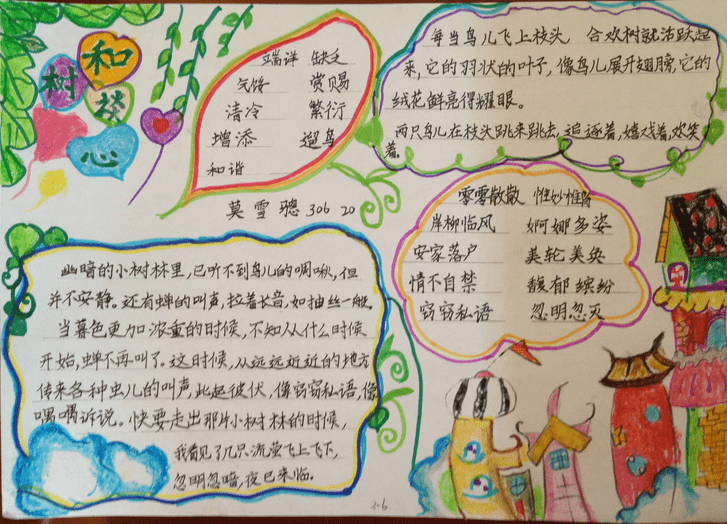 和
树
谈
心
端详 缺乏
气馁 赏赐
清冷 繁衍
增添 遛鸟
和谐
莫雪骢 306 20
每当鸟儿飞上枝头 合欢树就活跃起
来,它的羽状的叶子,像鸟儿展开翅膀,它的
绒花鲜亮得耀眼。
两只鸟儿在枝头跳来跳去,追逐着,嬉戏着,欢笑
着。
零零散散 惟妙惟肖
岸柳临风 婀娜多姿
安家落户 美轮美奂
情不自禁 馥郁缤纷
窃窃私语 忽明忽灭
幽暗的小树林里,已听不到鸟儿的啁啾,但
并不安静。还有蝉的叫声,拉着长音,如抽丝一般。
当暮色更加浓重的时候,不知从什么时候
开始,蝉不再叫了。这时候,从远远近近的地方
传来各种虫儿的叫声,此起彼伏,像窃窃私语,像
喁喁诉说。快要走出那片小树林的时候,
我看见了几只流萤飞上飞下,
忽明忽暗,夜已来临。
306